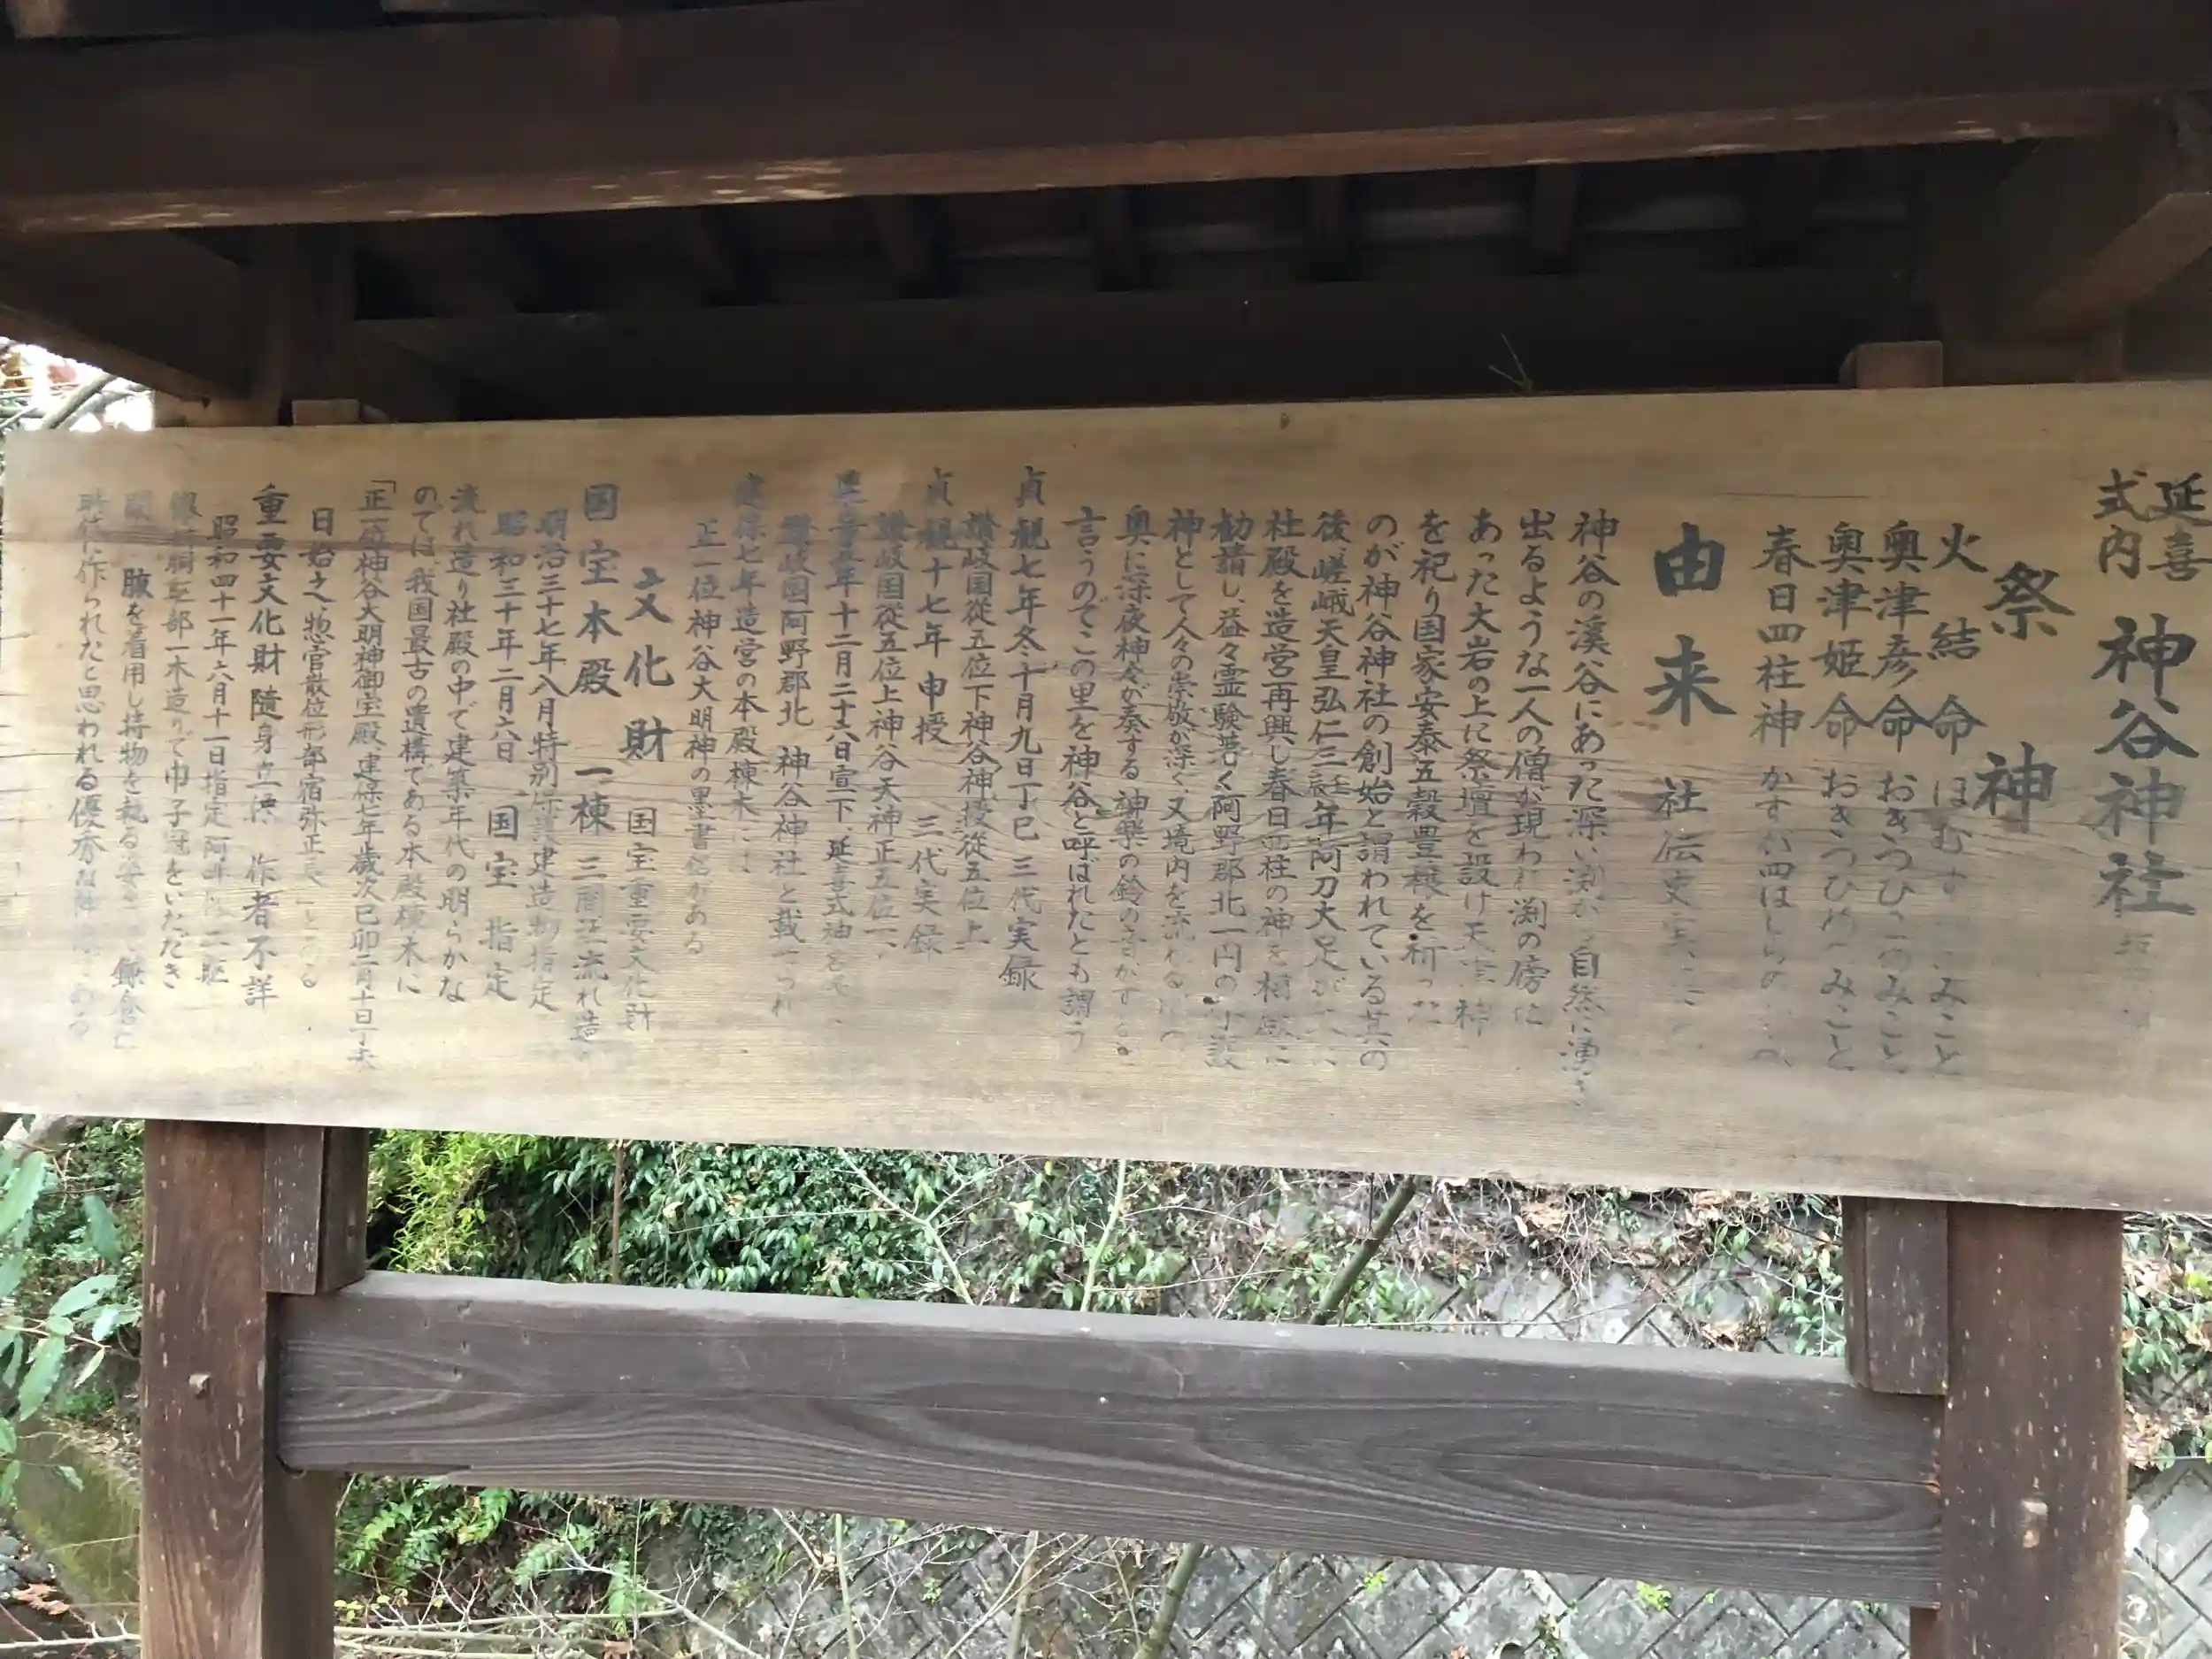 延喜
式内
神谷神社
祭神
火結命 ほむす みこと
奥津彦命 おきつひこのみこと
奥津姫命 おきつひめのみこと
春日四柱神 かすが四はしらの
由来 社伝史実に
神谷の渓谷にあった深い渕から自然に湧き
出るような一人の僧が現われ渕の傍に
あった大岩の上に祭壇を設け天 神
を祀り国家安泰五穀豊穣を祈った
のが神谷神社の創始と謂われている其の
後嵯峨天皇弘仁三年阿刀大足が
社殿を造営再興し春日四柱の神を相殿に
勧請し、益々霊験著く阿野郡北一円の
神として人々の崇敬が深く、又境内を流れる
奥に深夜神々が奏する神楽の鈴の音がすると
言うのでこの里を神谷と呼ばれたとも謂う
貞観七年冬十月九日丁巳 三代実録
讃岐国従五位下神谷神授従五位上
貞観十七年 申授 三代実録
讃岐国従五位上神谷天神正五位
年十二月二十六日宣下、延喜式神名
讃岐国阿野郡北 神谷神社と載
建保七年造営の本殿棟木には
正一位神谷大明神の墨書銘がある
文化財 国宝重要文化財
国宝本殿 一棟 三間社流れ造
明治三十七年八月特別保護建造物指定
昭和三十年二月六日 国宝 指定
流れ造り社殿の中で建築年代の明らかな
のでは、我国最古の遺構である本殿棟木に
「正一位神谷大明神御宝殿、建保七年歳次己卯二月十日丁未
日始之、惣官散位刑部宿弥正長」とある
重要文化財 随身立像 作者不詳
昭和四十一年六月十一日指定 阿 二躯
胴 部一木造りで巾子冠をいただき
腋を着用し持物を執る姿で 鎌倉
時代に作られたと思われる優秀な神像である